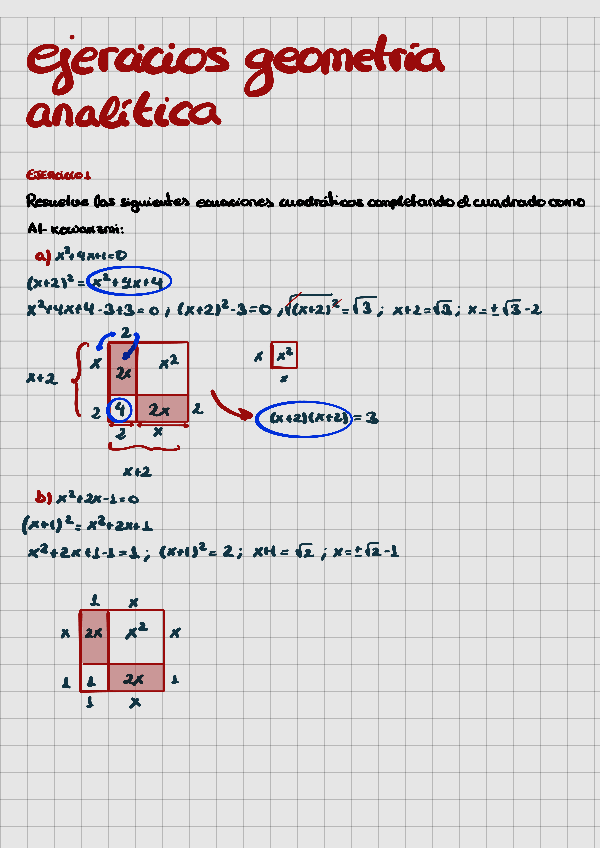 ejercicios geometría
analítica
EJERCICIO 1
Resuelve las siguientes ecuaciones cuadráticas completando el cuadrado como
Al-kowarizmi:
a) x²+4x+1=0
(x+2)² = x²+4x+4
x²+4x+4-3+3=0 ; (x+2)²-3=0 ; √(x+2)² = √3 ; x+2=√3 ; x=±√3-2
2
x
2x
x²
x
x²
x
x+2
2
4
2x
2
(x+2)(x+2) = 3
2
x
x+2
b) x²+2x-1=0
(x+1)² = x²+2x+1
x²+2x+1-1=1 ; (x+1)²=2 ; x+1=√2 ; x=±√2-1
1 x
x 2x x² x
1 1 2x 1
1 x